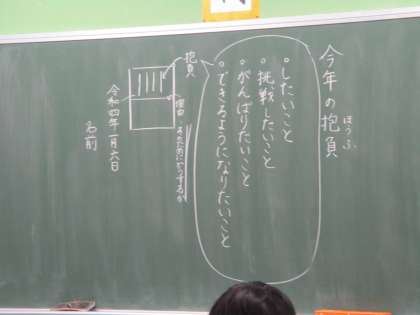 今年の抱負
ほうふ
・したいこと
・挑戦したいこと
・がんばりたいこと
・できるようになりたいこと
抱負
理由・そのために何をするか
令和四年一月六日
名前